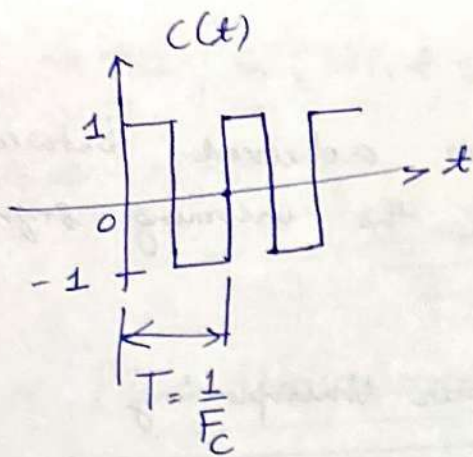 C(t)
1
t
0
-1
T = 1/F_C